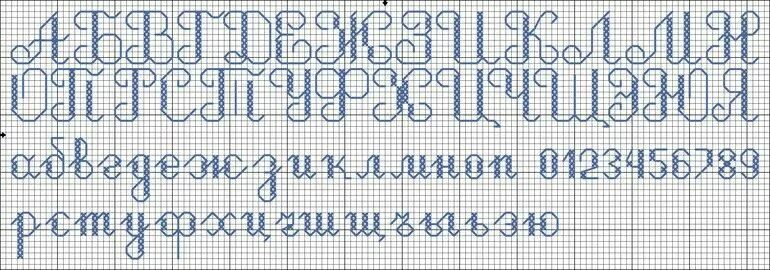 АБВГДЕЖЗИКЛМН
ОПРСТУФХЦЧЩЭЮЯ
абвгдежзиклмноп 0123456789
рстуфхцчшщъыьэю